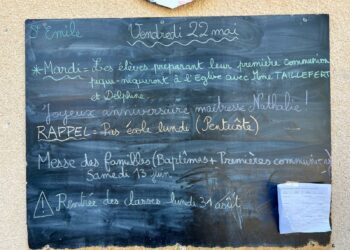 St Emile
Vendredi 22 mai
* Mardi = Les élèves préparant leur première communion
pique-niqueront à l'Eglise avec Mme TAILLEFERT
et Delphine
Joyeux anniversaire maîtresse Nathalie !
RAPPEL = Pas école lundi (Pentecôte)
Messe des familles (Baptêmes + Premières communions)
Samedi 13 juin
! Rentrée des classes lundi 31 août